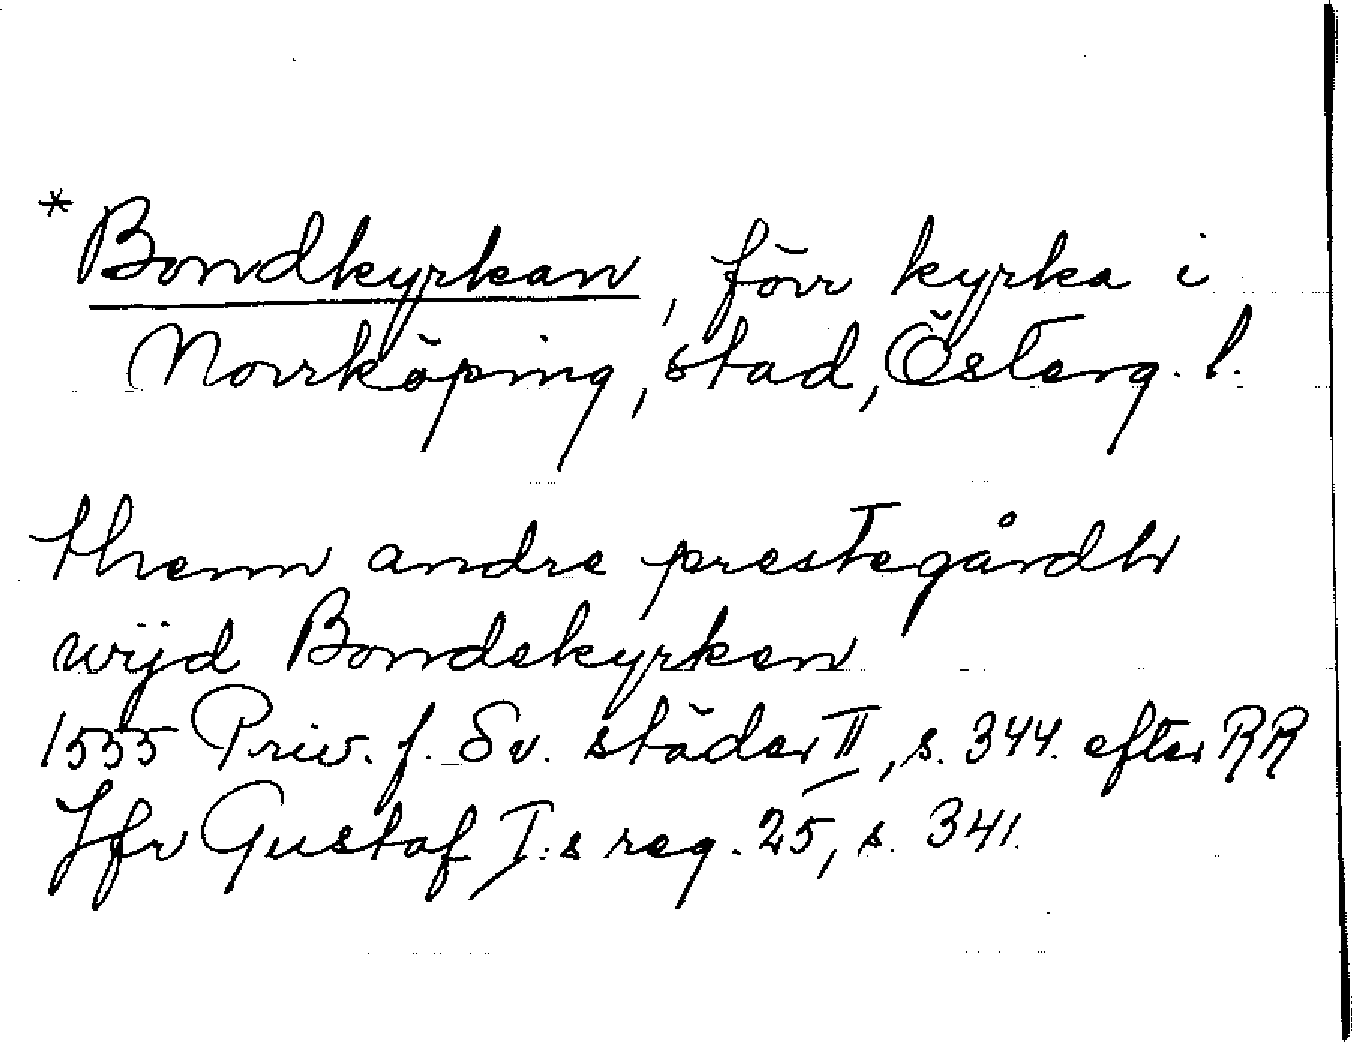 * Bondkyrkan, förr kyrka i
Norrköping, stad, Österg. l.
thenn andre prestegårdh
wijd Bondekyrken
1555 Priv. f. Sv. städer II, s. 344. efter RR
Jfr Gustaf I:s reg. 25, s. 341.